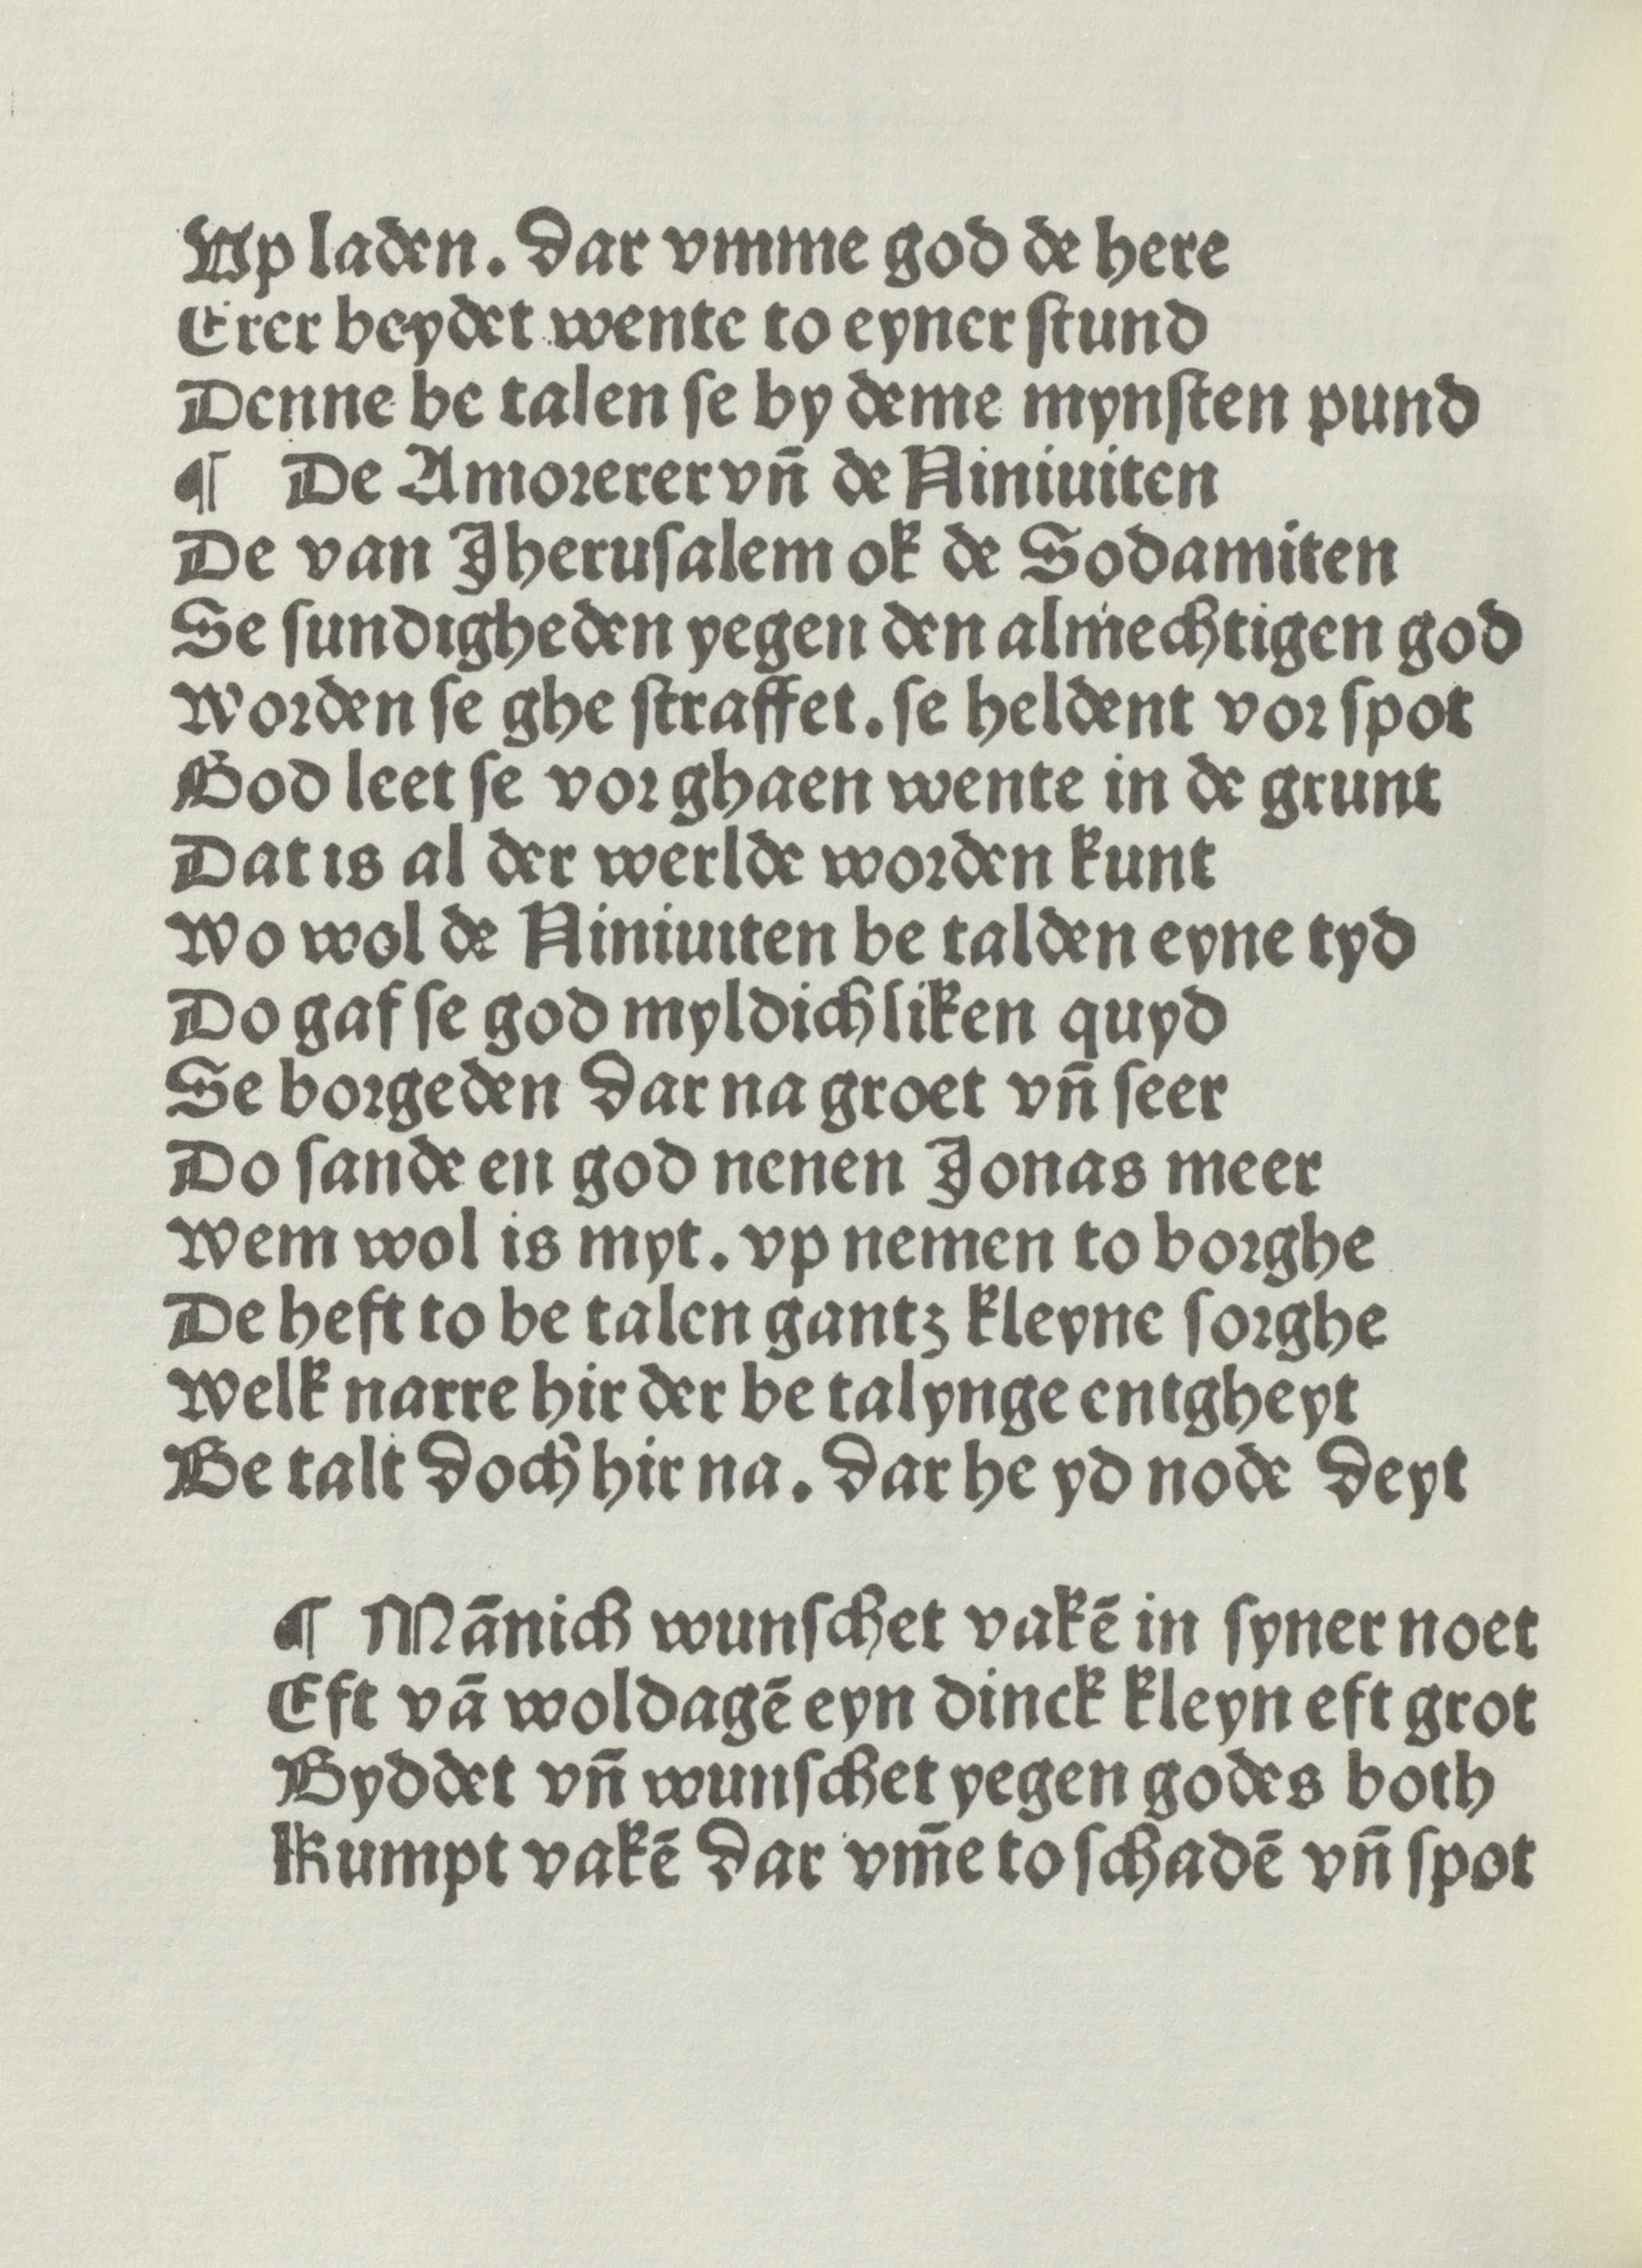 Vp laden. dar vmme god de here
Erer beydet wente to eyner ſtund
Denne be talen ſe by deme mynſten pund
¶ De Amorerer vn̄ de Niniuiten
De van Jheruſalem ok de Sodamiten
Se ſundigheden yegen den almechtigen god
Worden ſe ghe ſtraffet. ſe heldent vor ſpot
God leet ſe vor ghaen wente in de grunt
Dat is al der werlde worden kunt
Wo wol de Niniuiten be talden eyne tyd
Do gaf ſe god myldichliken quyd
Se borgeden dar na groet vn̄ ſeer
Do ſande en god nenen Jonas meer
Wem wol is myt. vp nemen to borghe
De heft to be talen gantz kleyne ſorghe
Welk narre hir der be talynge entgheyt
Be talt doch hir na. dar he yd node deyt
¶ Mānich wunſchet vakē in ſyner noet
Eft vā woldagē eyn dinck kleyn eft grot
Byddet vn̄ wunſchet yegen godes both
Kumpt vakē dar vm̄e to ſchadē vn̄ ſpot